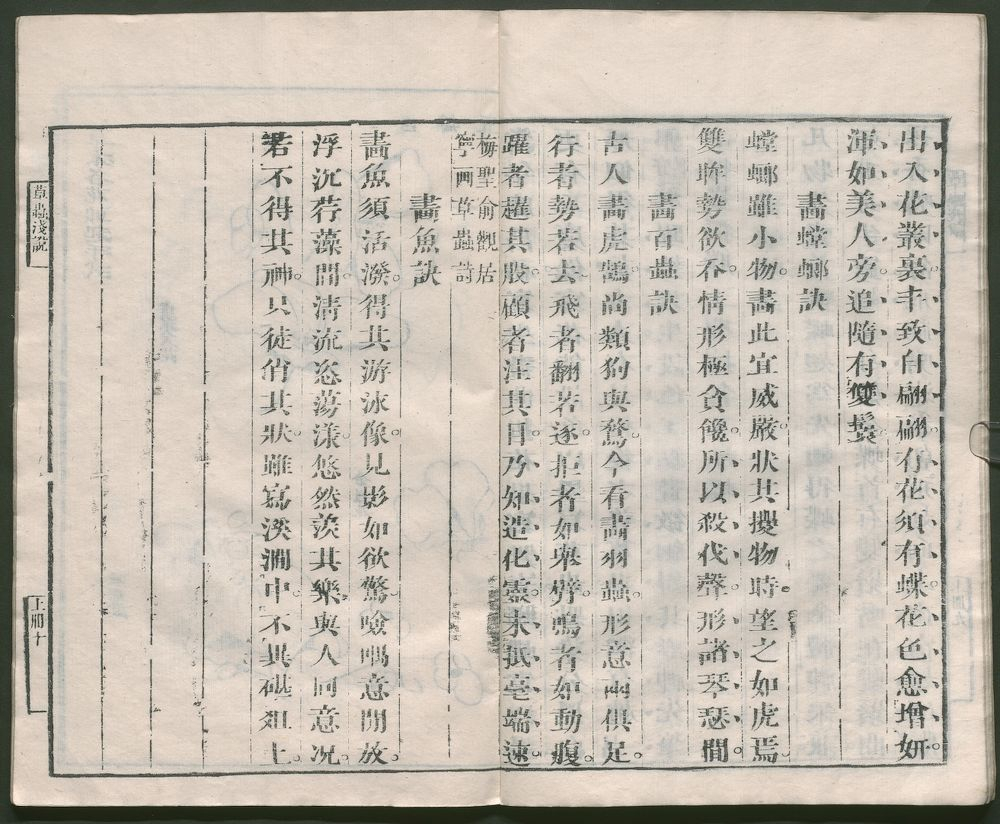 出入花叢裏。丰致自翩翩。有花須有蝶。花色愈增妍。
渾如美人旁。追隨有雙鬟。
畫螳螂訣
螳螂雖小物。畫此宜威嚴。狀其攫物時。望之如虎焉。
雙眸勢欲吞。情形極貪饞。所以殺伐聲。形諸琴瑟間。
畫百蟲訣
古人畫虎鵠。尚類狗與鶩。今看畫羽蟲。形意兩俱足。
行者勢若去。飛者翻若逐。拒者如舉臂。鳴者如動腹。
躍者趯其股。顧者注其目。乃知造化靈。未抵毫端速。
梅聖俞觀居
寧画草蟲詩
畫魚訣
畫魚須活潑。得其游泳像。見影如欲驚。噞喁意閒放。
浮沉荇藻間。清流恣蕩漾。悠然羨其樂。與人同意况。
若不得其神。只徒俏其狀。雖寫溪澗中。不異砧爼上。
草蟲淺說
上册十